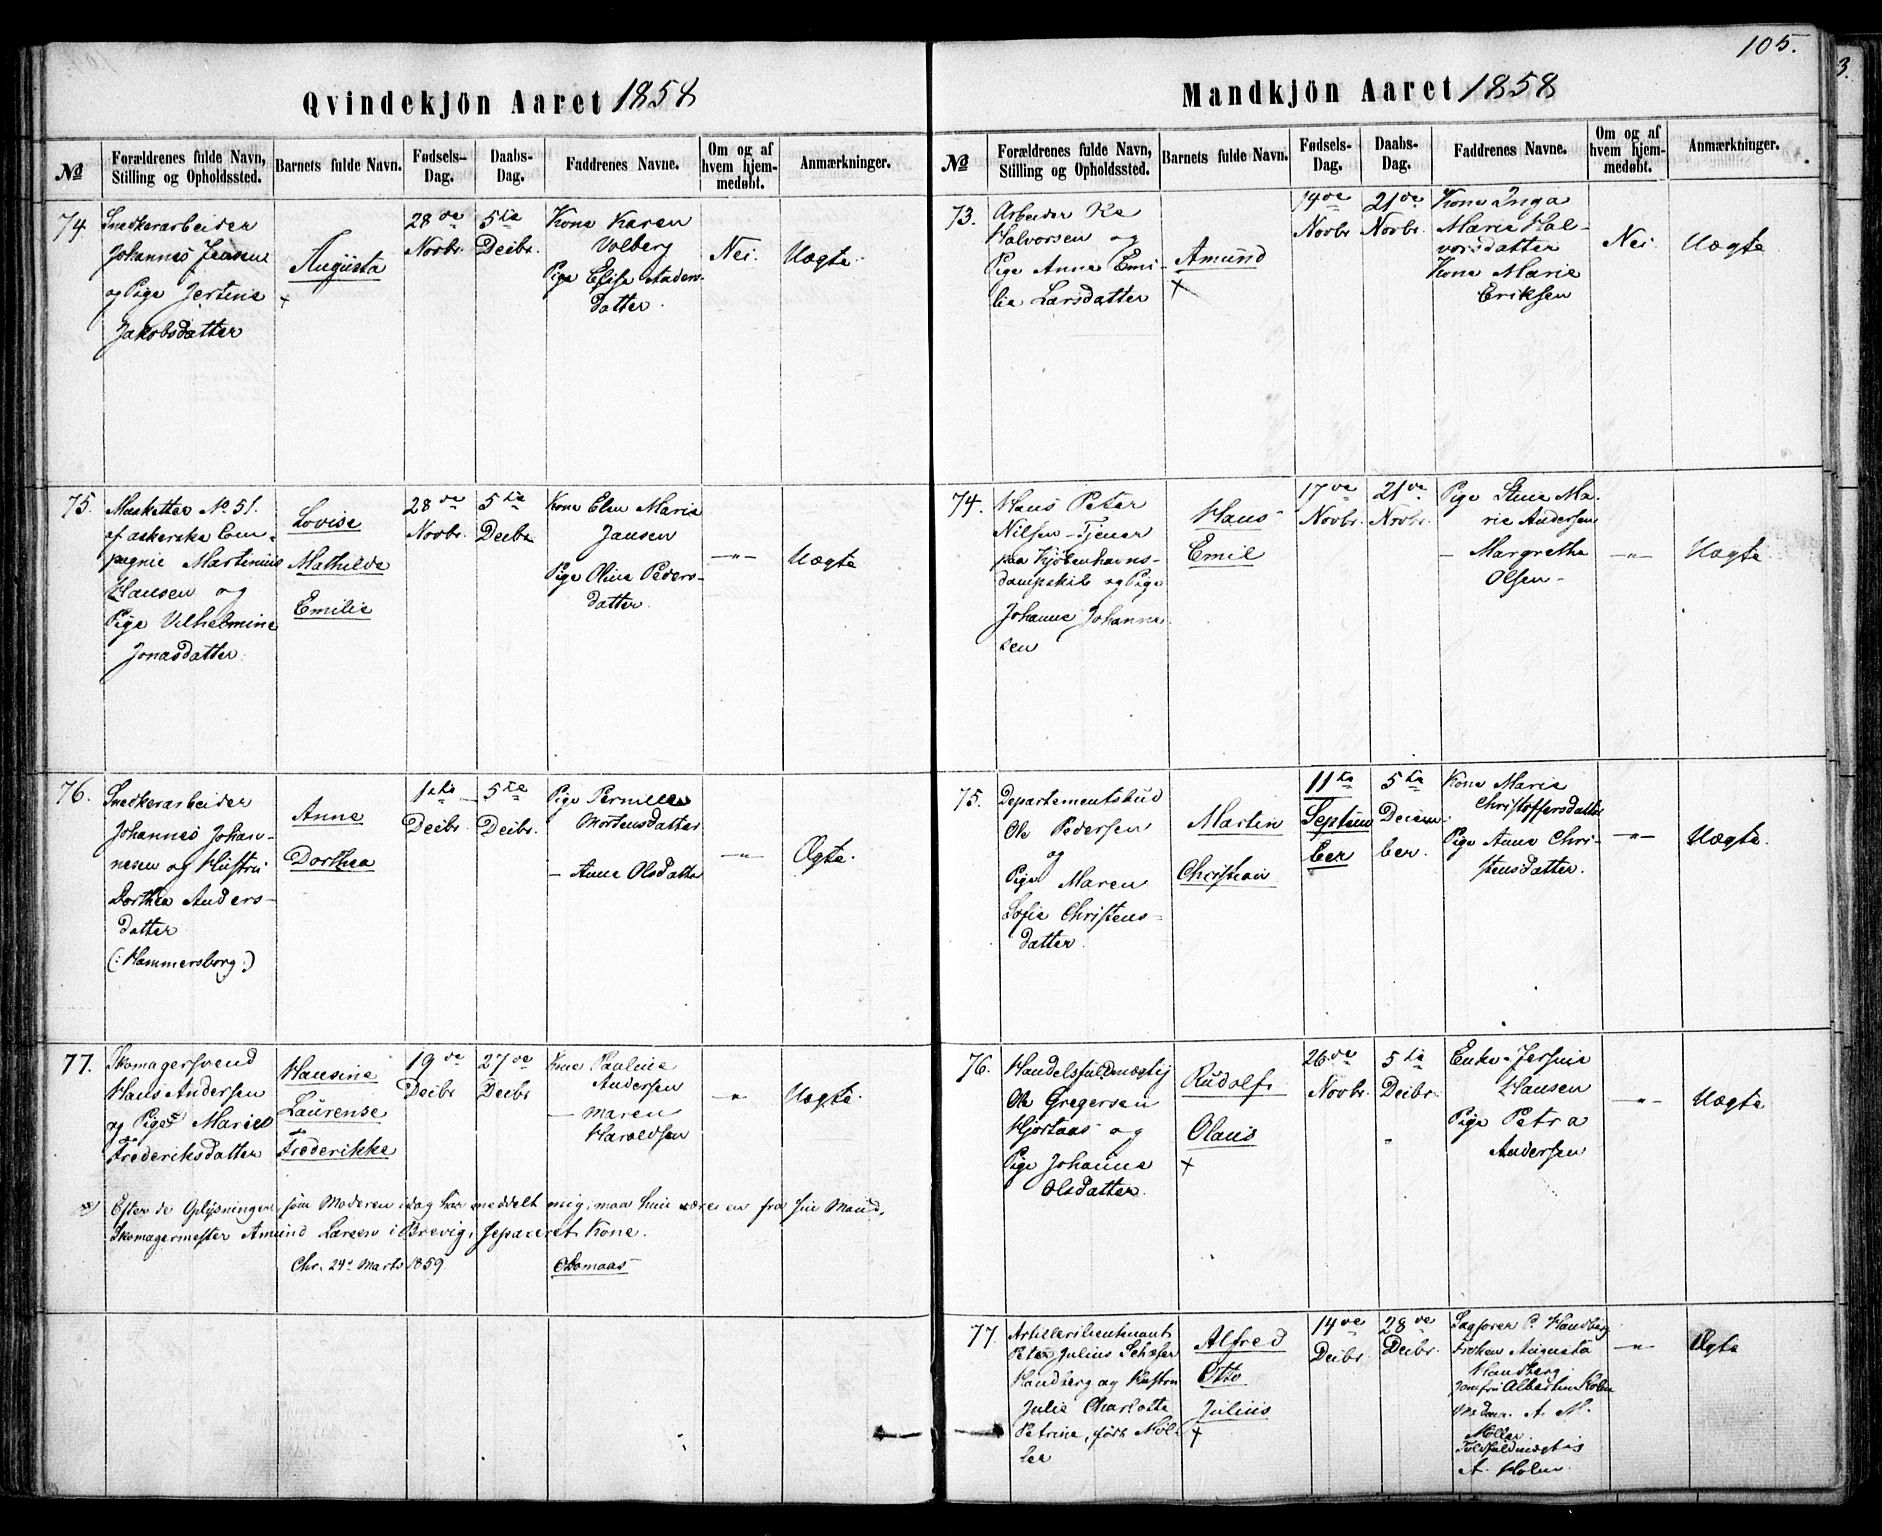 105.
Qvindekjön Aaret 1858
No
Forældrenes fulde Navn, Stilling og Opholdssted.
Barnets fulde Navn.
Fødsels-Dag.
Daabs-Dag.
Faddrenes Navne.
Om og af hvem hjem-medøbt.
Anmærkninger.
74.
Snedkerarbeider
Johannes Jensen
og Pige Jertine
Jakobsdatter
Augusta
+
28de
Novbr.
5te
Decbr.
Kone Karen
Volberg
Pige Elise Anders-
datter.
Nei.
Uægte.
75.
Musketter No 51.
af askerske Com-
pagnie Martinius
Hansen og
Pige Vilhelmine
Jonasdatter.
Lovise
Mathilde
Emilie
28de
Novbr.
5te
Decbr.
Kone Elen Marie
Jansen
Pige Oline Peders-
datter.
—"—
Uægte
76.
Snedkerarbeider
Johannes Johan-
nesen og Hustru
Dorthea Anders-
datter
(: Hammersborg :)
Anne
Dorthea
1ste
Decbr.
5te
Decbr.
Pige Pernille
Mortensdatter
— Anne Olsdatter
—"—
Ægte.
77.
Skomagersvend
Hans Andersen
og Pige x) Marie
Frederiksdatter
Hansine
Laurense
Frederikke
19de
Decbr.
27de
Decbr.
Kone Pauline
Andersen
— Maren
Haroldsen
"
Uægte.
x) Efter de Oplysninger, som Moderen idag har meddelt mig, maa hun være en fra sin Mand,
Skomagermester Amund Larsen i Brevig, separeret Kone.
Chr. 24de Marts 1859.
Mandkjön Aaret 1858
No
Forældrenes fulde Navn, Stilling og Opholdssted.
Barnets fulde Navn.
Fødsels-Dag.
Daabs-Dag.
Faddrenes Navne.
Om og af hvem hjem-medøbt.
Anmærkninger.
73.
Arbeider
Halvorsen og
Pige Anne Emi-
lie Larsdatter
Amund
+
14de
Novbr.
21de
Novbr.
Kone Inga
Marie Hal-
vorsdatter
Kone Marie
Eriksen
Nei.
Uægte
74.
Hans Peter
Nilsen - Tjener
paa Kjøbenhavns-
dampskib og Pige
Johanne Johanne
sen
Hans
Emil
17de
Novbr.
21de
Novbr.
Pige Stine Ma-
rie Andersen
— Margrethe
Olsen -
—"—
Uægte
75.
Departementsbud
Ole Pedersen
og
Pige Maren
Sofie Christens-
datter.
Martin
Christian
11te
Septem
ber
5te
Decem
ber.
Kone Marie
Christoffersdatter
Pige Anne Chri-
stensdatter.
—"—
Uægte.
76.
Handelsfuldmægtig
Ole Gregersen
Hjortaas og
Pige Johanne
Olsdatter.
Rudolf
Olaus
+
26de
Novbr.
5te
Decbr.
Enke
Hansen
Pige Petra
Andersen
—"—
Uægte
77.
Artillerilieutenant
Peter Julius Schæfer
Handberg og Hustru
Julie Charlotte
Petrine, født Møl-
ler
Alfred
Otto
Julius
+
14de
Decbr.
28de
Decbr.
Sagfører P. Handberg
Frøken Augusta
Handberg
Jomfru Albertine Holm
Madam A. M.
Møller.
Toldfuldmægtig
A. Holm.
—"—
Ægte